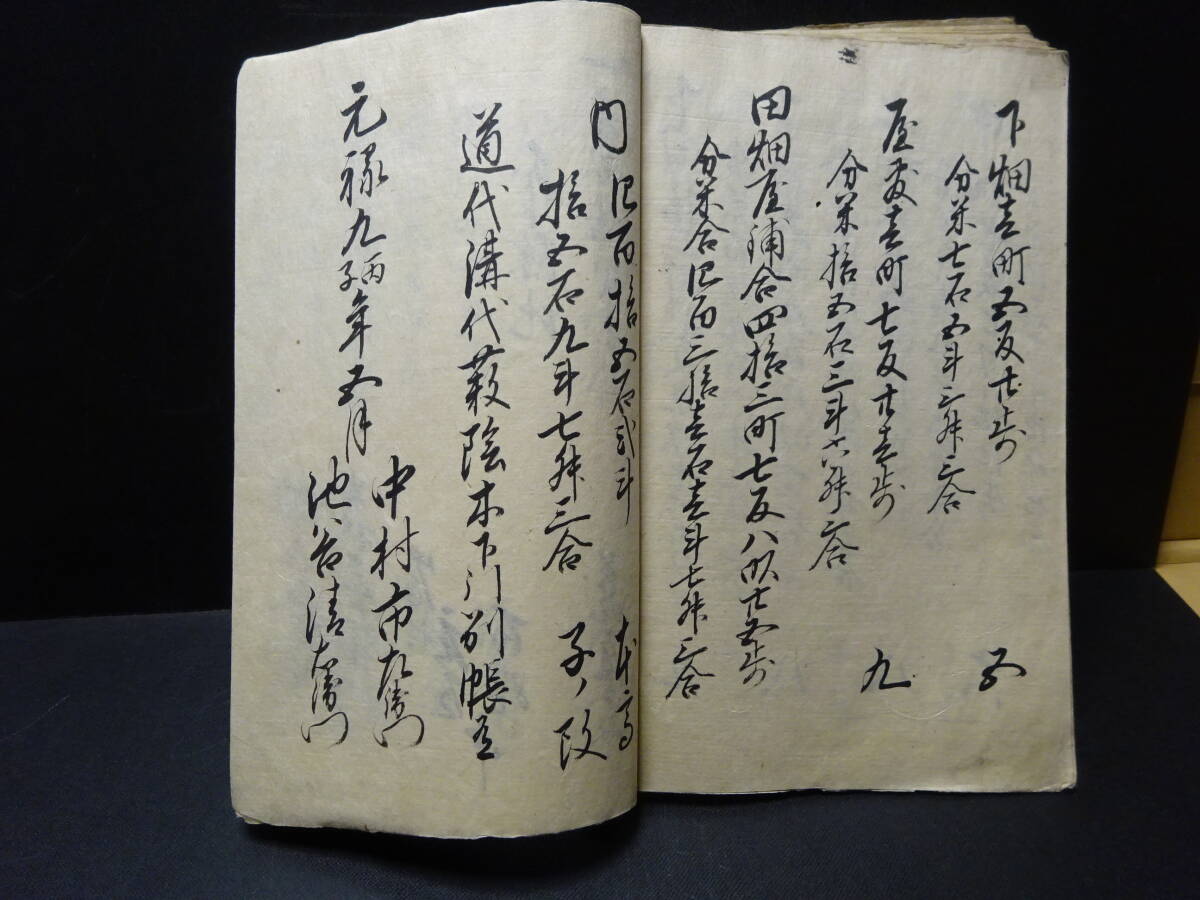 下畑壱町五反廿歩
五
分米七石五斗三升三合
屋敷壱町七反廿壱歩
九
分米拾五石三斗六升六合
田畑屋舗合四拾三町七反八畝廿五歩
分米合四百三拾壱石壱斗七升三合
内 四百拾五石弐斗 本高
拾五石九斗七升三合 子ノ改
道代溝代藪陰木下門別帳有
元禄九丙子年五月
中村市左衛門
池谷清左衛門